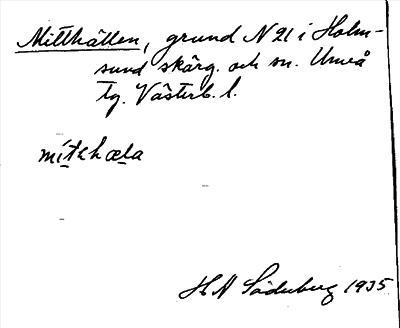 Mitthällen, grund N 21 i Holm-
sund skärg. och sn. Umeå
tg. Västerb. l.
míthhæla
H A Söderberg 1935